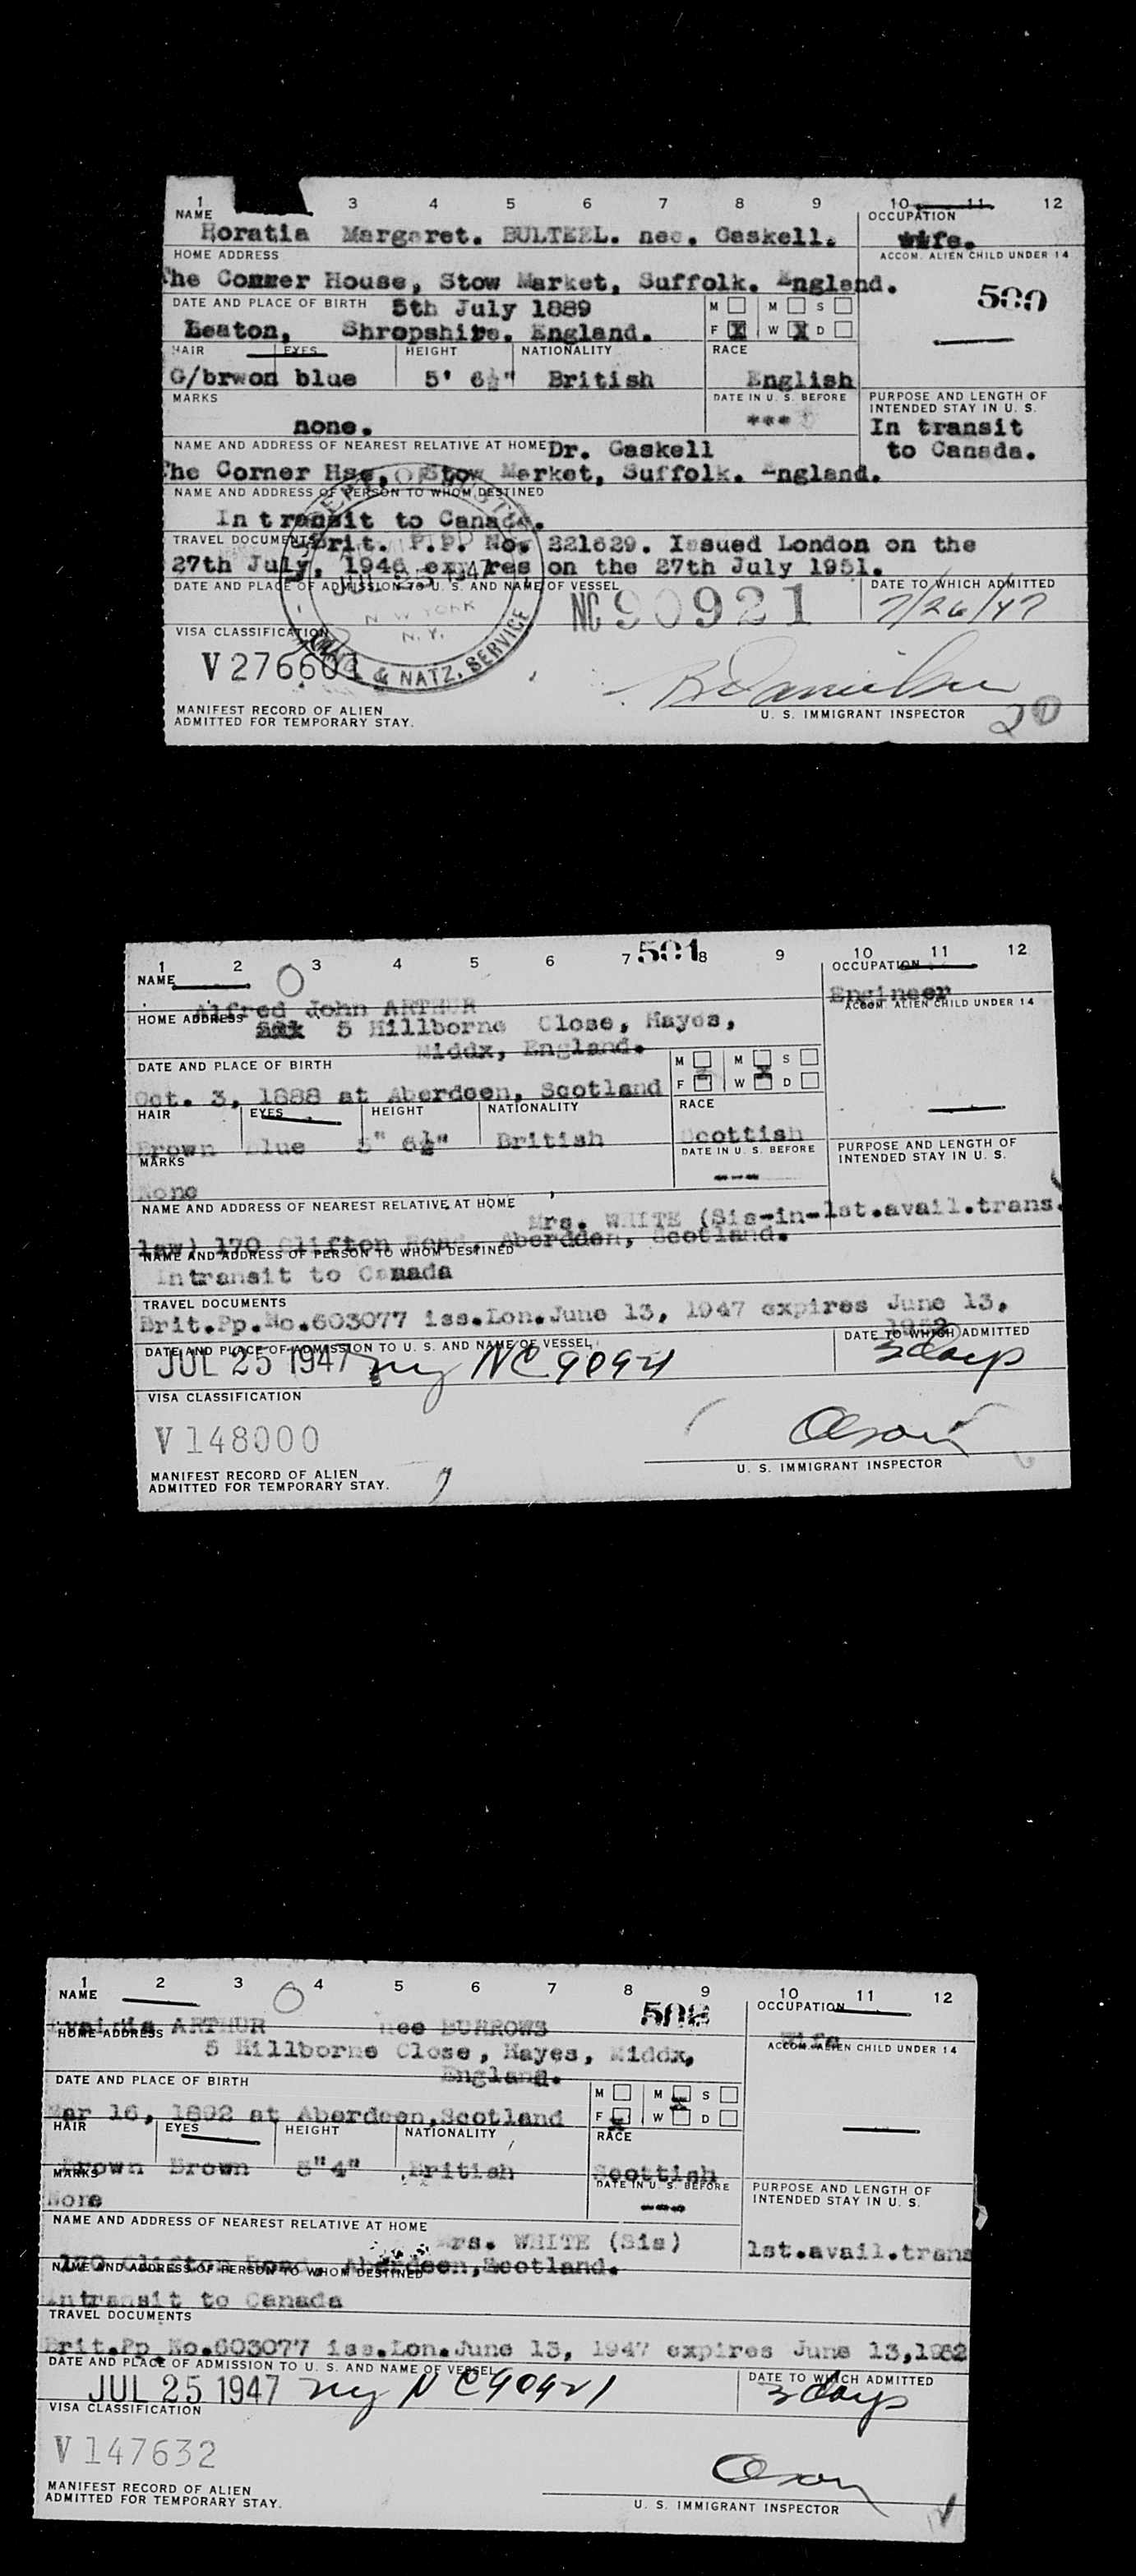 1 3 4 5 6 7 8 9 10 11 12
NAME OCCUPATION
Horatia Margaret. BULTEEL. nee. Gaskell. wife.
HOME ADDRESS ACCOM. ALIEN CHILD UNDER 14
The Commer House, Stow Market, Suffolk. England.
500
DATE AND PLACE OF BIRTH 5th July 1889 M M S
Leaton, Shropshire. England. F X W X D
HAIR EYES HEIGHT NATIONALITY RACE
G/brwon blue 5' 6½" British English
MARKS DATE IN U. S. BEFORE PURPOSE AND LENGTH OF INTENDED STAY IN U. S.
none. *** In transit
NAME AND ADDRESS OF NEAREST RELATIVE AT HOME Dr. Gaskell to Canada.
The Corner Hse, Stow Market, Suffolk. England.
NAME AND ADDRESS OF PERSON TO WHOM DESTINED
In transit to Canada.
TRAVEL DOCUMENTS Brit. P.P. No. 221629. Issued London on the
27th July, 1946 expires on the 27th July 1951.
DATE AND PLACE OF ADMISSION TO U. S. AND NAME OF VESSEL DATE TO WHICH ADMITTED
NC 90921 7/26/47
NEW YORK
N. Y.
& NATZ. SERVICE
VISA CLASSIFICATION
V 276601
MANIFEST RECORD OF ALIEN
ADMITTED FOR TEMPORARY STAY.
U. S. IMMIGRANT INSPECTOR 20
1 2 3 4 5 6 7 501 8 9 10 11 12
NAME OCCUPATION
Alfred John ARTHUR Engineer
HOME ADDRESS ACCOM. ALIEN CHILD UNDER 14
5 Hillborne Close, Hayes,
Middx, England.
DATE AND PLACE OF BIRTH M M S
Oct. 3, 1888 at Aberdeen, Scotland F W D
HAIR EYES HEIGHT NATIONALITY RACE
Brown Blue 5" 6½" British Scottish
MARKS DATE IN U. S. BEFORE PURPOSE AND LENGTH OF INTENDED STAY IN U. S.
None ---
NAME AND ADDRESS OF NEAREST RELATIVE AT HOME
Mrs. WHITE (Sis-in- 1st.avail.trans.
law) 170 Clifton Road, Aberdden, Scotland.
NAME AND ADDRESS OF PERSON TO WHOM DESTINED
Intransit to Canada
TRAVEL DOCUMENTS
Brit.Pp.No.603077 iss.Lon.June 13, 1947 expires June 13,
1952
DATE AND PLACE OF ADMISSION TO U. S. AND NAME OF VESSEL DATE TO WHICH ADMITTED
JUL 25 1947 ny NC 90921 3 days
VISA CLASSIFICATION
V 148000
MANIFEST RECORD OF ALIEN
ADMITTED FOR TEMPORARY STAY.
U. S. IMMIGRANT INSPECTOR
1 2 3 4 5 6 7 8 9 10 11 12
NAME 502 OCCUPATION
ARTHUR nee BURROWS Wife
HOME ADDRESS ACCOM. ALIEN CHILD UNDER 14
5 Hillborne Close, Hayes, Middx,
England.
DATE AND PLACE OF BIRTH M M S
Mar 16, 1892 at Aberdeen,Scotland F W D
HAIR EYES HEIGHT NATIONALITY RACE
Brown Brown 5"4" British Scottish
MARKS DATE IN U. S. BEFORE PURPOSE AND LENGTH OF INTENDED STAY IN U. S.
None ---
NAME AND ADDRESS OF NEAREST RELATIVE AT HOME
Mrs. WHITE (Sis) 1st.avail.trans
170 Clifton Road, Aberdeen,Scotland.
NAME AND ADDRESS OF PERSON TO WHOM DESTINED
Intransit to Canada
TRAVEL DOCUMENTS
Brit.Pp No.603077 iss.Lon.June 13, 1947 expires June 13,1952
DATE AND PLACE OF ADMISSION TO U. S. AND NAME OF VESSEL DATE TO WHICH ADMITTED
JUL 25 1947 ny NC 90921 3 days
VISA CLASSIFICATION
V 147632
MANIFEST RECORD OF ALIEN
ADMITTED FOR TEMPORARY STAY.
U. S. IMMIGRANT INSPECTOR